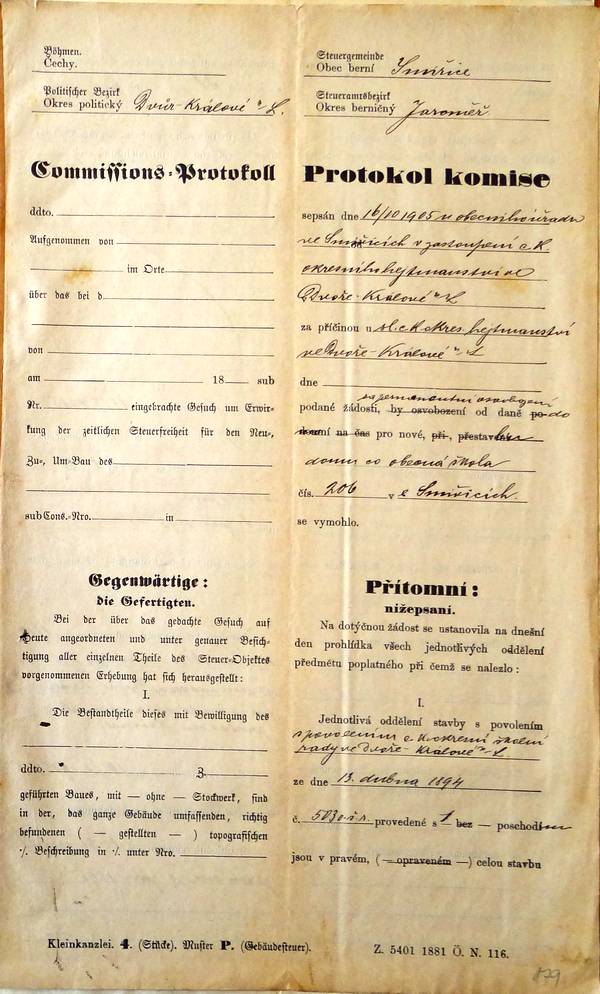 Böhmen.
Čechy.
Politischer Bezirk
Okres politický Dvůr-Králové n/L.
Commissions-Protokoll
ddto.
Aufgenommen von
im Orte
über das bei d
von
am 18 sub
Nr. eingebrachte Gesuch um Erwir-
kung der zeitlichen Steuerfreiheit für den Neu-,
Zu-, Um-Bau des
sub Cons.-Nro. in
Gegenwärtige:
die Gefertigten.
Bei der über das gedachte Gesuch auf
Heute angeordneten und unter genauer Besich-
tigung aller einzelnen Theile des Steuer-Objektes
vorgenommenen Erhebung hat sich herausgestellt:
I.
Die Bestandtheile dieses mit Bewilligung des
ddto. Z.
geführten Baues, mit — ohne — Stockwerk, sind
in der, das ganze Gebäude umfassenden, richtig
befundenen ( — gestellten — ) topografischen
·/. Beschreibung in ·/. unter Nro.
Kleinkanzlei. 4. (Stücke). Muster P. (Gebäudesteuer).
Steuergemeinde
Obec berní Smiřice
Steueramtsbezirk
Okres berničný Jaroměř
Protokol komise
sepsán dne 16/10 1905 v obecním úřadu
ve Smiřicích v zastoupení c. k.
okresního hejtmanství ve
Dvoře-Králové n/L
za příčinou u sl. c. k. okres. hejtmanství
ve Dvoře-Králové n/L
dne
za permanentní osvobození
podané žádosti, by osvobození od daně po- do
domní na čas pro nové, při-, přestavbu
domu co obecná škola
čís. 206 v e Smiřicích.
se vymohlo.
Přítomní:
nížepsaní.
Na dotýčnou žádost se ustanovila na dnešní
den prohlídka všech jednotlivých oddělení
předmětu poplatného při čemž se nalezlo:
I.
Jednotlivá oddělení stavby s povolením
s povolením c. k. okresní školní
rady ve Dvoře-Králové n/L
ze dne 13. dubna 1894
č. provedené s 1 — bez — poschodím
jsou v pravém, ( — opraveném —) celou stavbu
Z. 5401 1881 Ö. N. 116.
879